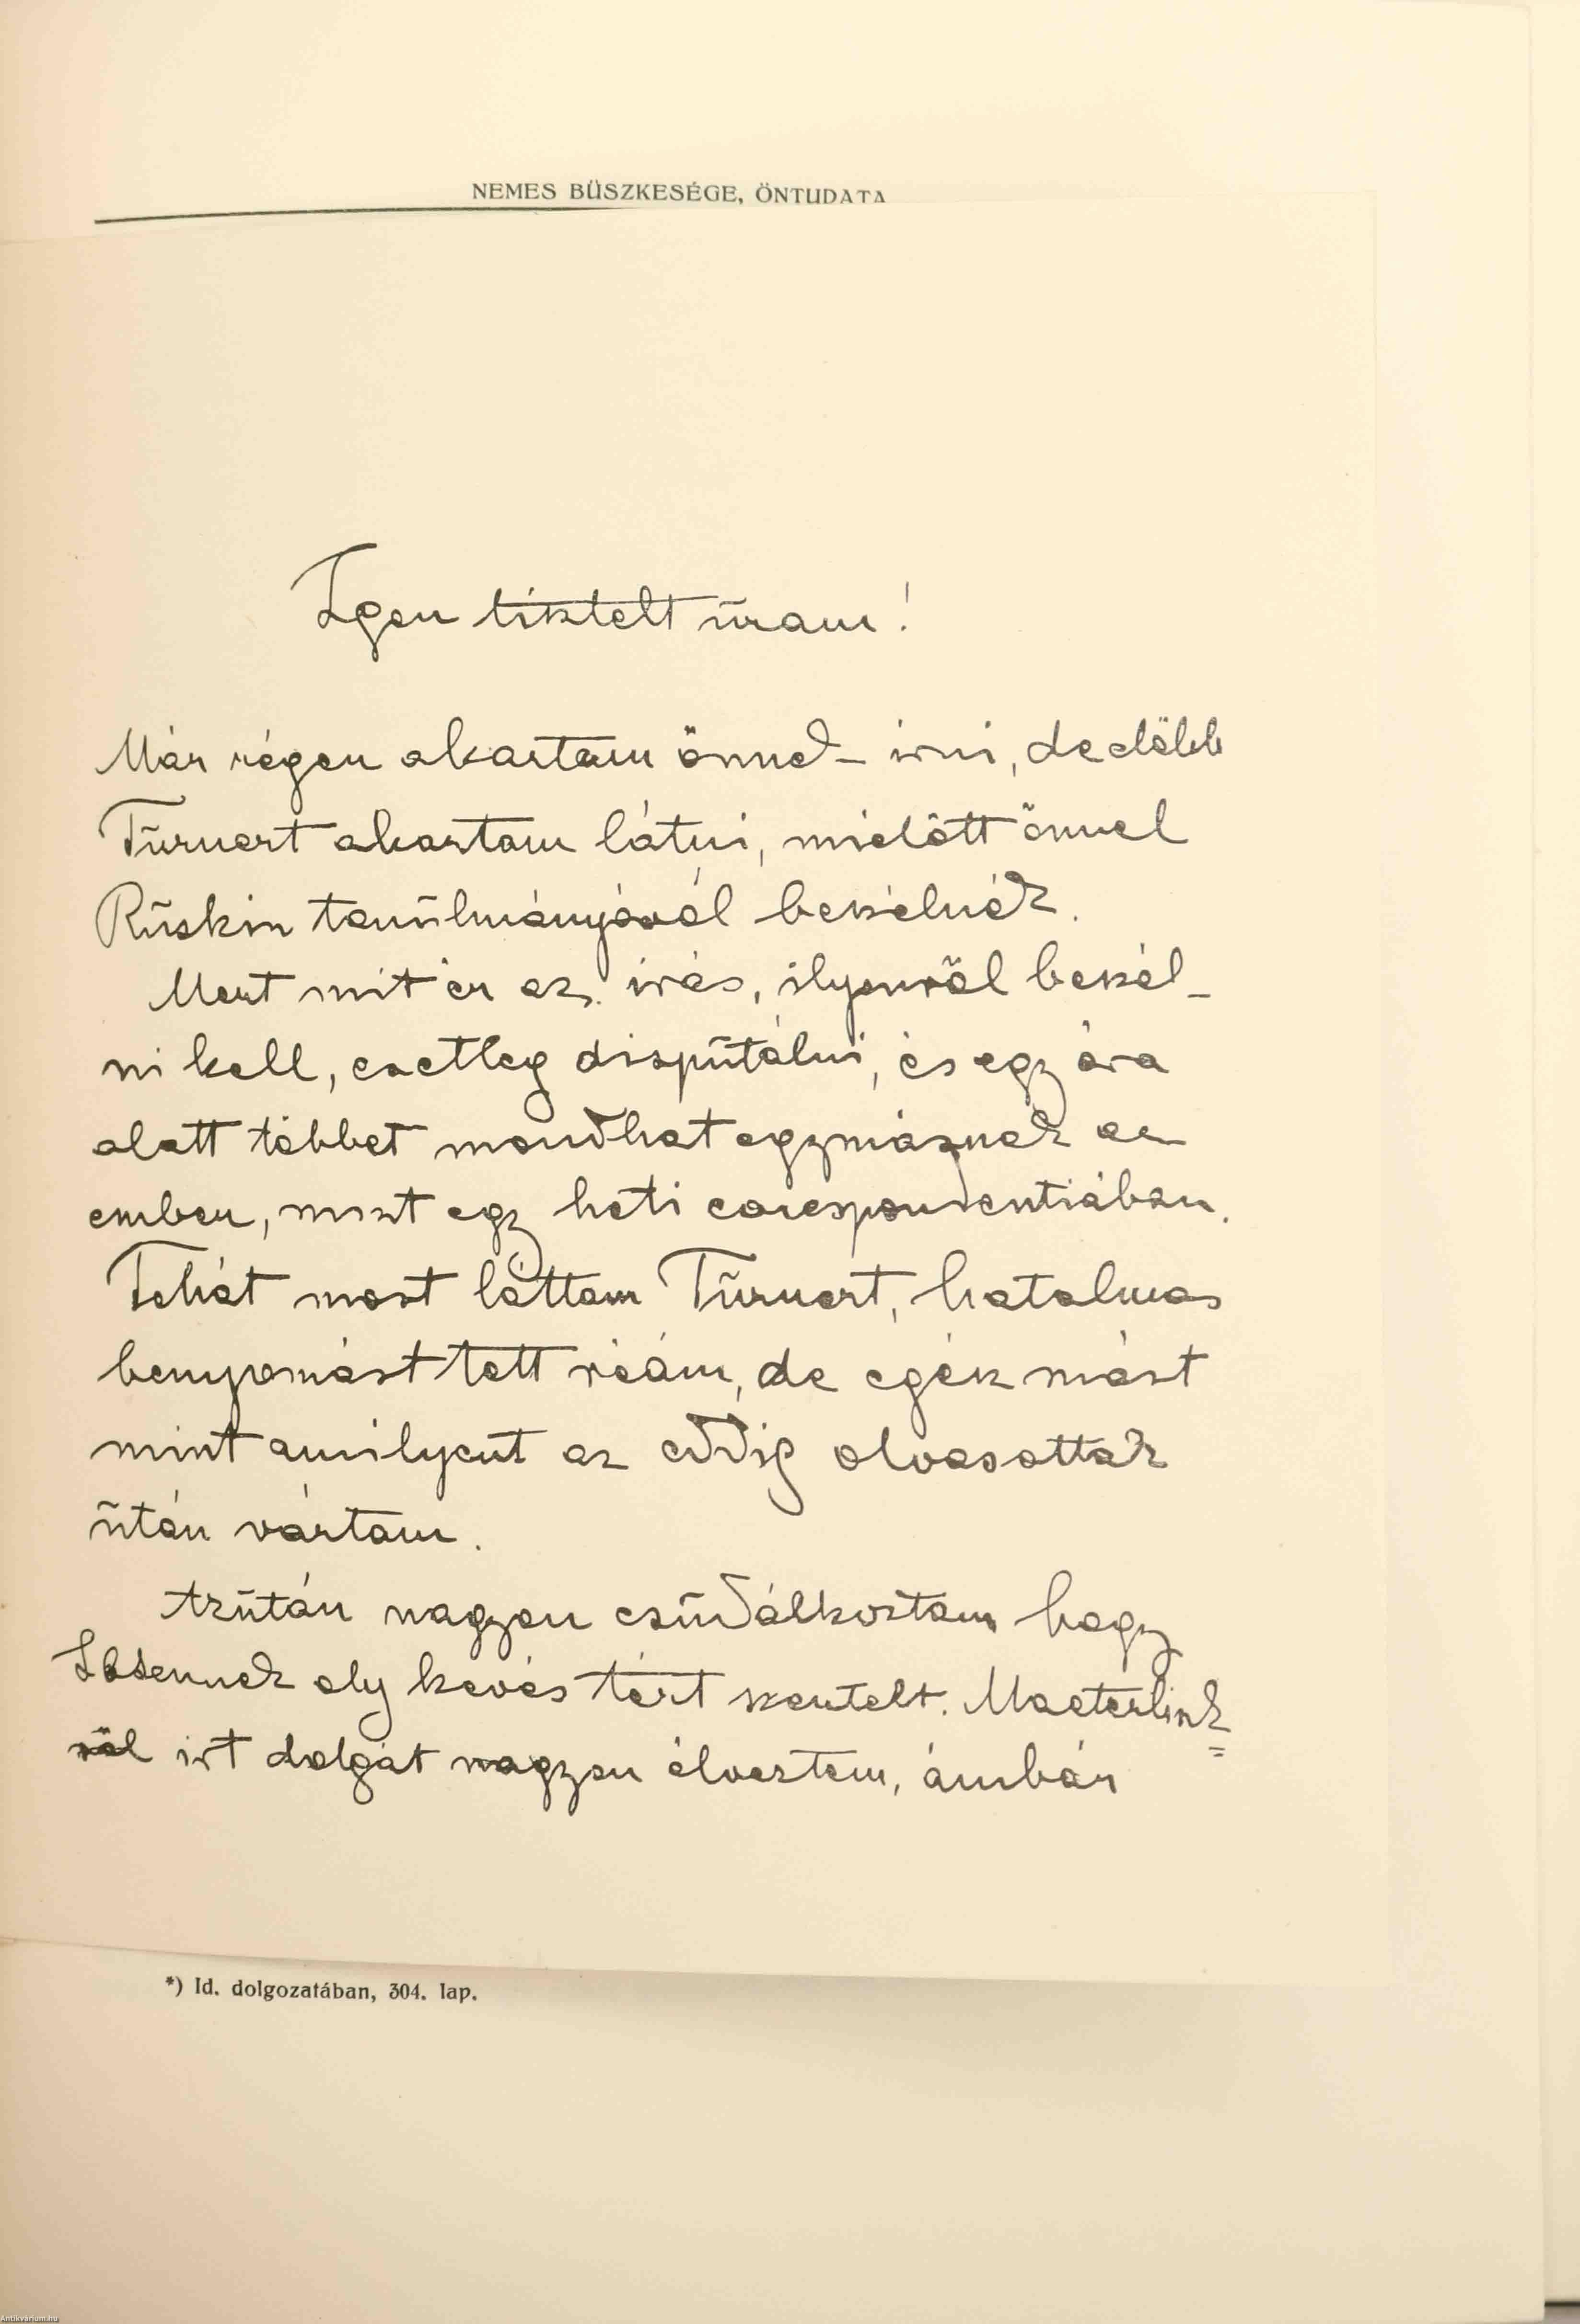 NEMES BÜSZKESÉGE, ÖNTUDATA
Igen tisztelt uram!
Már régen akartam önnek irni, de elöbb
Turnert akartam látni, mielött önnel
Ruskin tanulmányáról beszélnék.
Mert mit ér az irás, ilyenröl beszél-
ni kell, esetleg disputálni, és egy óra
alatt többet mondhat egymásnak az
ember, mint egy heti corespondentiában.
Tehát most láttam Turnert, hatalmas
benyomást tett reám, de egész mást
mint amilyent az eddig olvasottak
után vártam.
Azután nagyon csudálkoztam hogy
Ibsennek oly kevés tért szentelt. Maeterlink=
röl irt dolgát nagyon élveztem, ámbár
*) Id. dolgozatában, 304. lap.
Antikvárium.hu